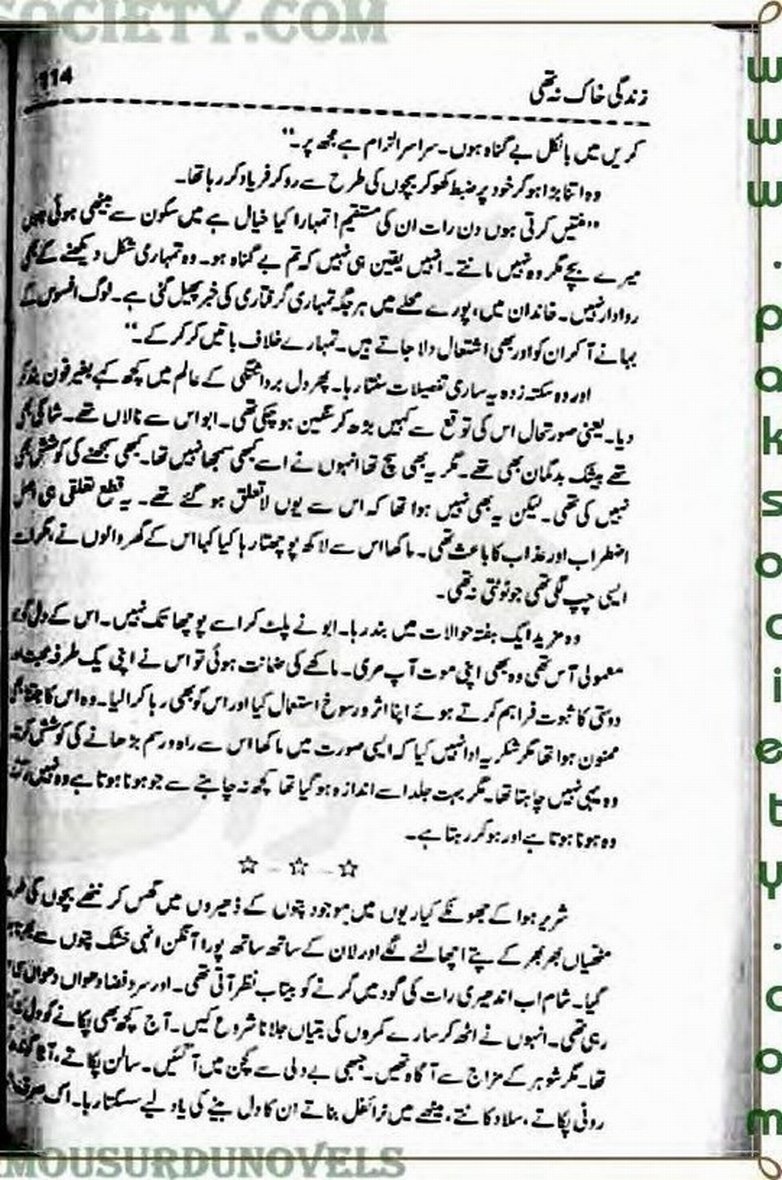 SOCIETY.COM
114
زندگی خاک نہ تھی
کریں میں بالکل بے گناہ ہوں۔ سراسر الزام ہے مجھ پر۔"
وہ اتنا بڑا ہو کر خود پر ضبط کھو کر بچوں کی طرح سے رو کر فریاد کر رہا تھا۔
"منتیں کرتی ہوں دن رات ان کی مستقیم! تمہارا کیا خیال ہے میں سکون سے بیٹھی ہوئی ہوں
میرے بچے مگر وہ نہیں مانتے۔ انہیں یقین ہی نہیں کہ تم بے گناہ ہو۔ وہ تمہاری شکل دیکھنے کے بھی
روادار نہیں۔ خاندان میں، پورے محلے میں ہر جگہ تمہاری گرفتاری کی خبر پھیل گئی ہے۔ لوگ افسوس کے
بہانے آ کر ان کو اور بھی اشتعال دلا جاتے ہیں۔ تمہارے خلاف باتیں کر کر کے۔"
اور وہ سکتہ زدہ یہ ساری تفصیلات سنتا رہا۔ پھر دل برداشتگی کے عالم میں کچھ کہے بغیر فون بند کر
دیا۔ یعنی صورتحال اس کی توقع سے کہیں بڑھ کر سنگین ہو چکی تھی۔ ابو اس سے نالاں تھے۔ شاکی بھی
تھے بیشک بدگمان بھی تھے۔ مگر یہ بھی سچ تھا انہوں نے اسے کبھی سمجھا نہیں تھا۔ کبھی سمجھنے کی کوشش بھی
نہیں کی تھی۔ لیکن یہ بھی نہیں ہوا تھا کہ اس سے یوں لاتعلق ہو گئے تھے۔ یہ قطع تعلقی ہی اصل
اضطراب اور عذاب کا باعث تھی۔ ماکھا اس سے لاکھ پوچھتا رہا کیا کہا اس کے گھر والوں نے، مگر
ایسی چپ لگی تھی جو ٹوٹتی نہ تھی۔
وہ مزید ایک ہفتہ حوالات میں بند رہا۔ ابو نے پلٹ کر اسے پوچھا تک نہیں۔ اس کے دل کی جو
معمولی آس تھی وہ بھی اپنی موت آپ مری۔ ماکھے کی ضمانت ہوئی تو اس نے اپنی یک طرفہ محبت اور
دوستی کا ثبوت فراہم کرتے ہوئے اپنا اثر و رسوخ استعمال کیا اور اس کو بھی رہا کرا لیا۔ وہ اس کا جتنا بھی
ممنون ہوا تھا مگر شکریہ ادا نہیں کیا کہ ایسی صورت میں ماکھا اس سے راہ و رسم بڑھانے کی کوشش کرتا
وہ یہی نہیں چاہتا تھا۔ مگر بہت جلد اسے اندازہ ہو گیا تھا کچھ نہ چاہنے سے جو ہونا ہوتا ہے وہ نہیں
وہ ہونا ہوتا ہے اور ہو کر رہتا ہے۔
☆ – ☆ – ☆
شریر ہوا کے جھونکے کیاریوں میں موجود پتوں کے ڈھیروں میں گھس کر ننھے بچوں کی طرح
مٹھیاں بھر بھر کے پتے اچھالنے لگے اور لان کے ساتھ ساتھ پورا آنگن انہی خشک پتوں سے بھرتا
گیا۔ شام اب اندھیری رات کی گود میں گرنے کو بیتاب نظر آتی تھی۔ اور سرد فضا دھواں دھواں
رہی تھی۔ انہوں نے اٹھ کر سارے کمروں کی بتیاں جلانا شروع کیں۔ آج کچھ بھی پکانے کو دل
تھا۔ مگر شوہر کے مزاج سے آگاہ تھیں۔ جبھی بے دلی سے کچن میں آ گئیں۔ سالن پکاتے، آٹا
روٹی پکاتے، سلاد کاٹتے، میٹھے میں ٹرائفل بناتے ان کا دل بیٹے کی یاد لیے سسکتا رہا۔ اک
MOUSURDUNOVELS
www.paksociety.com